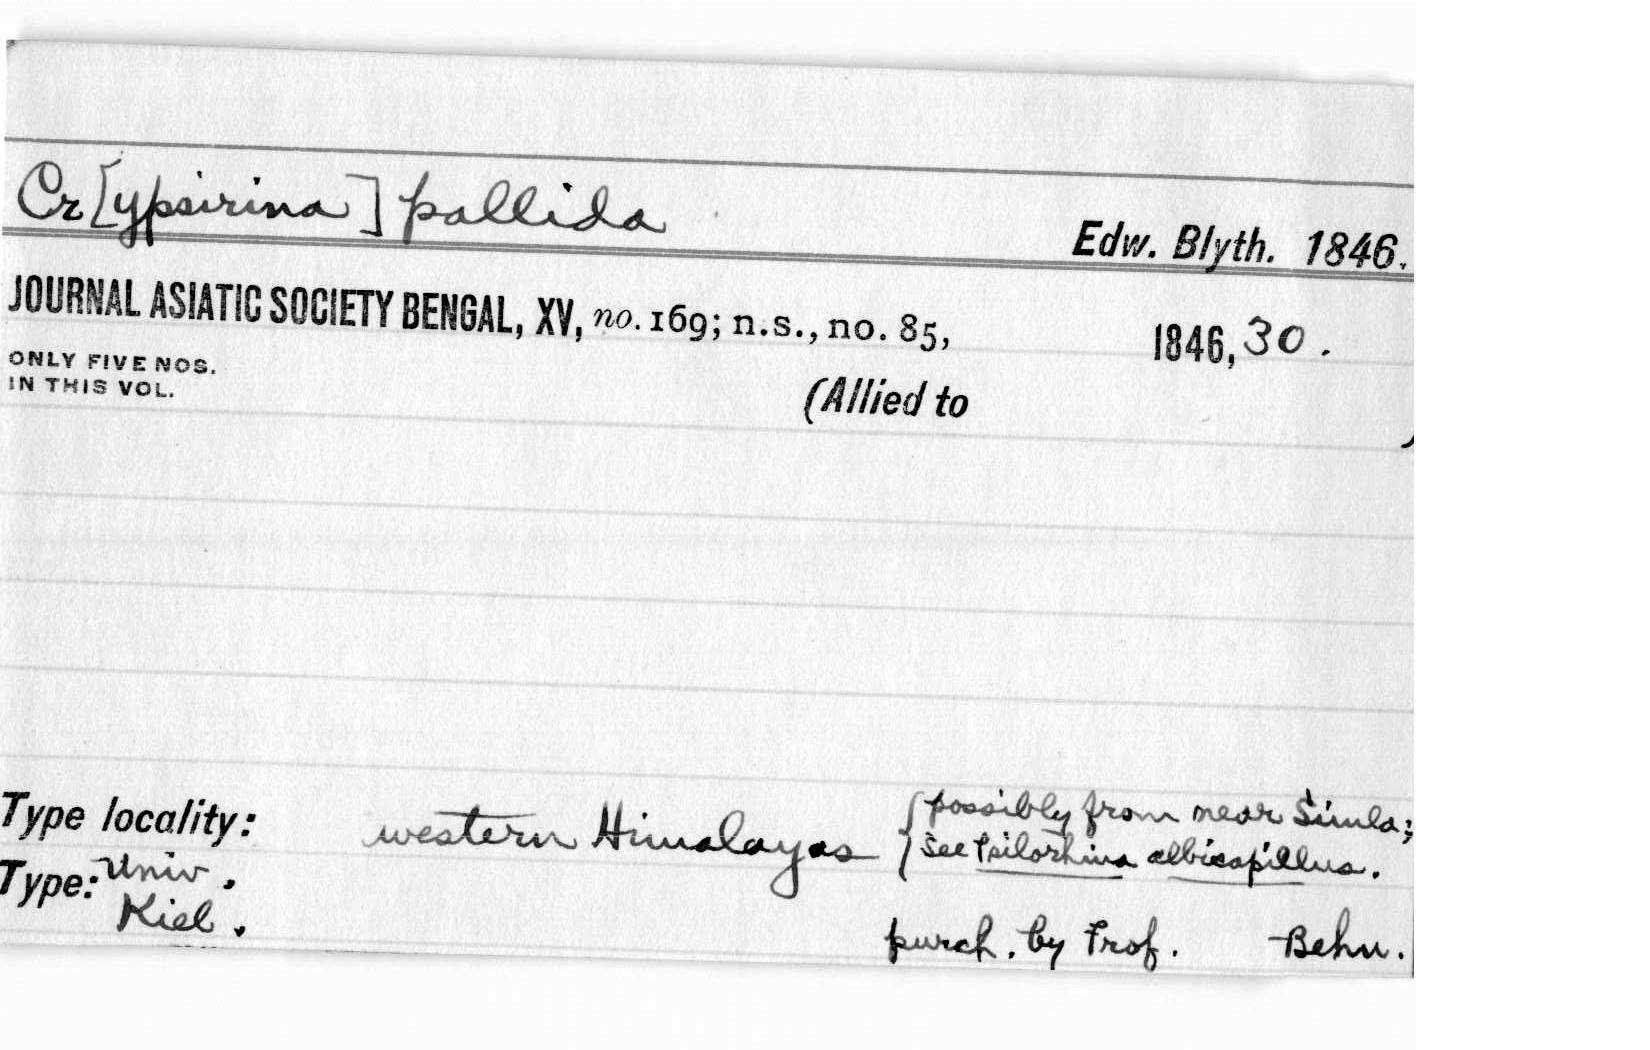 Cr[ypsirina] pallida
Edw. Blyth. 1846.
JOURNAL ASIATIC SOCIETY BENGAL, XV, no. 169; n.s., no. 85, 1846, 30.
ONLY FIVE NOS.
IN THIS VOL.
(Allied to )
Type locality: western Himalayas {possibly from near Simla;
see Psilorhina albicapillus.
Type: Univ.
Kiel.
purch. by Prof. Behn.